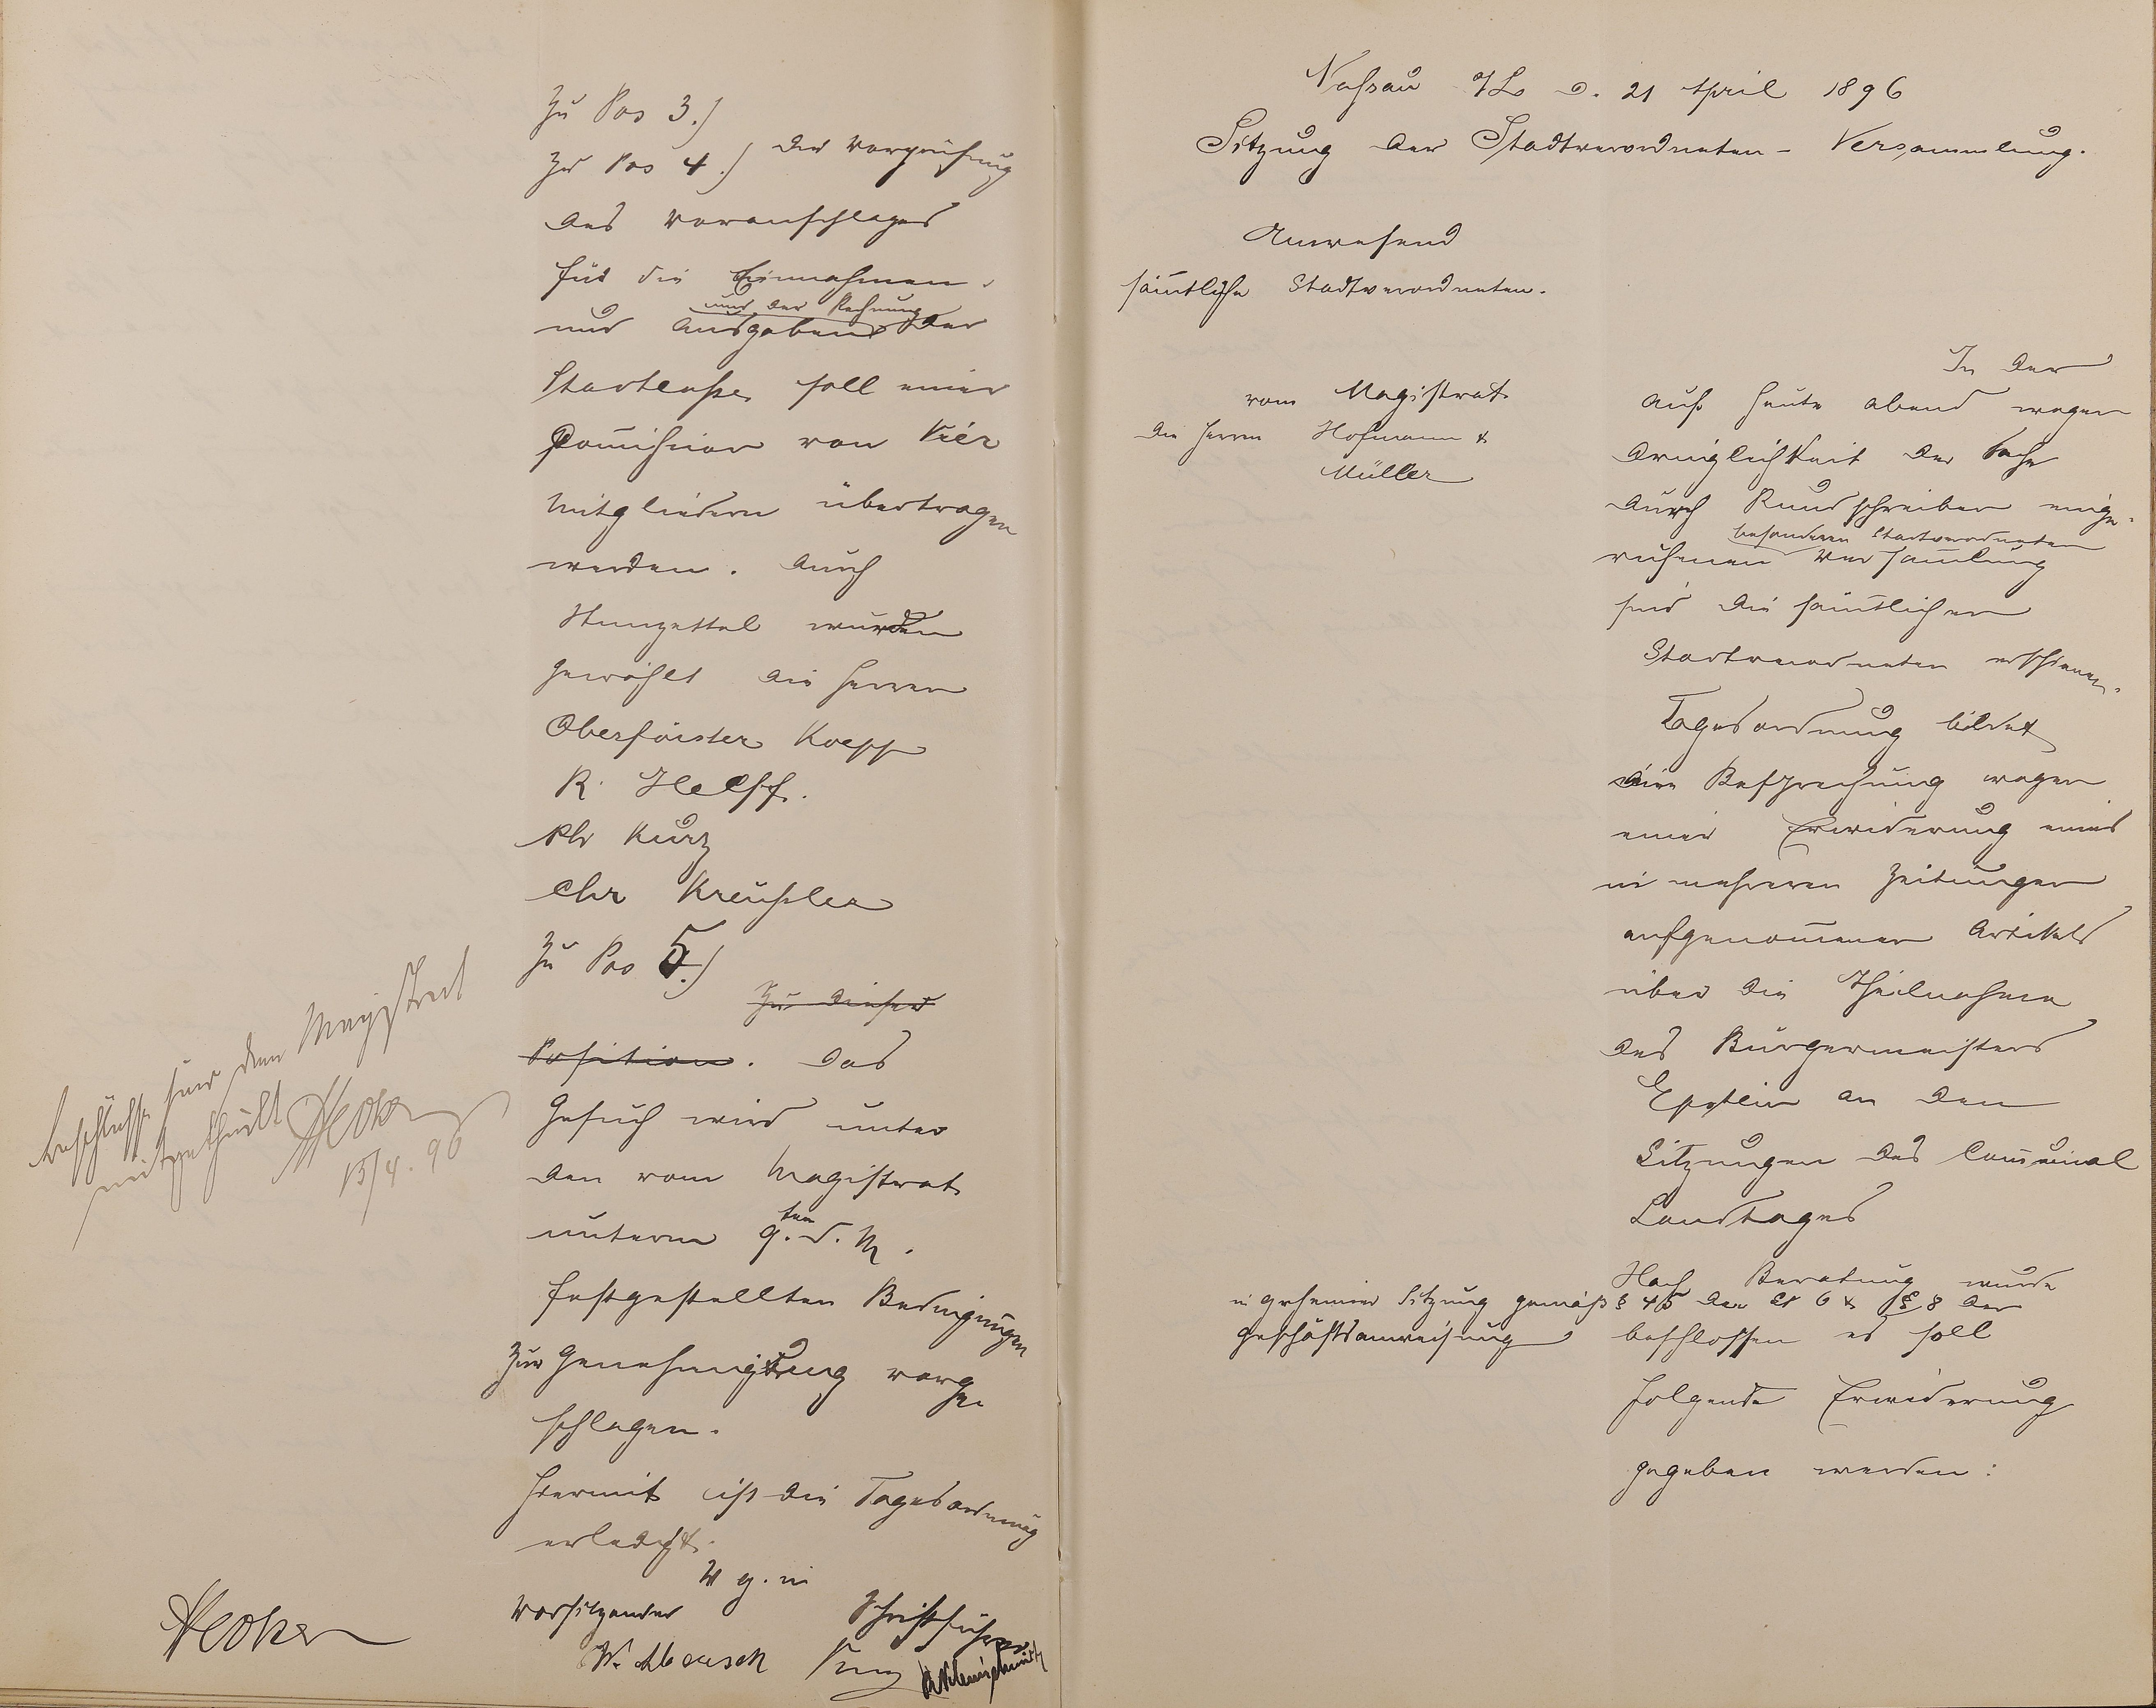 Zu Pos 3.)
Zu Pos 4.) Der Vorprüfung
des Voranschlages
für die Einnahmen
und der Rechnung
und Ausgaben der
Stadtkasse soll einer
Comission von Vier
Mitgliedern übertragen
werden. Durch
Stimzettel wurden
gewählt die Herren
Oberförster Koepp
R. Helff.
Phr Kurz
Chr Kreußler
Zu Pos 5.)
Zu dieser
Position. Das
Gesuch wird unter
den vom Magistrat
unterm 9.ten d. M.
festgestellten Bedingungen
zur Genehmigung vorge
schlagen.
Hiermit ist die Tagesordnung
erledigt.
W g. u
Vorsitzender Schriftführer
Beschlüsse sind dem Magistrat
mitgetheilt
15/4. 96
Nassau a/L d. 21 April 1896
Sitzung der Stadtverordneten-Versammlung.
Anwesend
sämtliche Stadtverordneten.
vom Magistrat
die Herren Hofmann &
Müller
In der
auf heute abend wegen
Dringlichkeit der Sache
durch Rundschreiben einge-
besonderen Stadtverordneten
rufenen Versamlung
sind die sämtlichen
Stadtverordneten erschienen.
Tagesordnung bildet
die Besprechung wegen
einer Erwiderung eines
in mehreren Zeitungen
aufgenomenen Artikels
über die Theilnahme
des Bürgermeisters
Epstein an den
Sitzungen des Comunal
Landtages
Nach Beratung wurde
in geheimer Sitzung gemäß § 45 der St O & § 8 der
Geschäftsanweisung beschlossen es soll
folgende Erwiderung
gegeben werden: